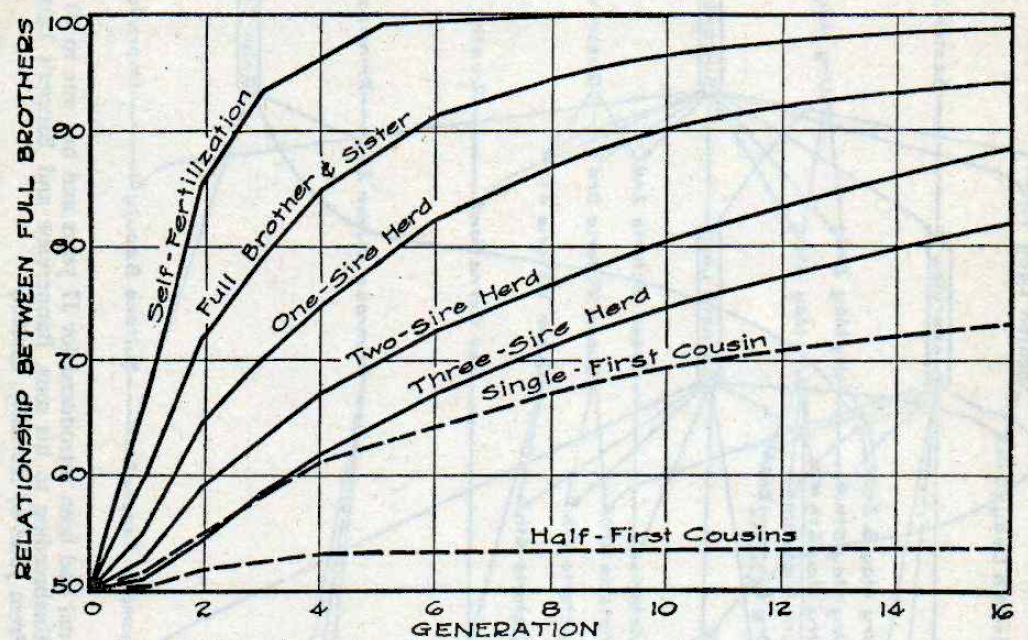 RELATIONSHIP BETWEEN FULL BROTHERS
100
90
80
70
60
50
Self-Fertilization
Full Brother & Sister
One-Sire Herd
Two-Sire Herd
Three-Sire Herd
Single-First Cousin
Half-First Cousins
0 2 4 6 8 10 12 14 16
GENERATION